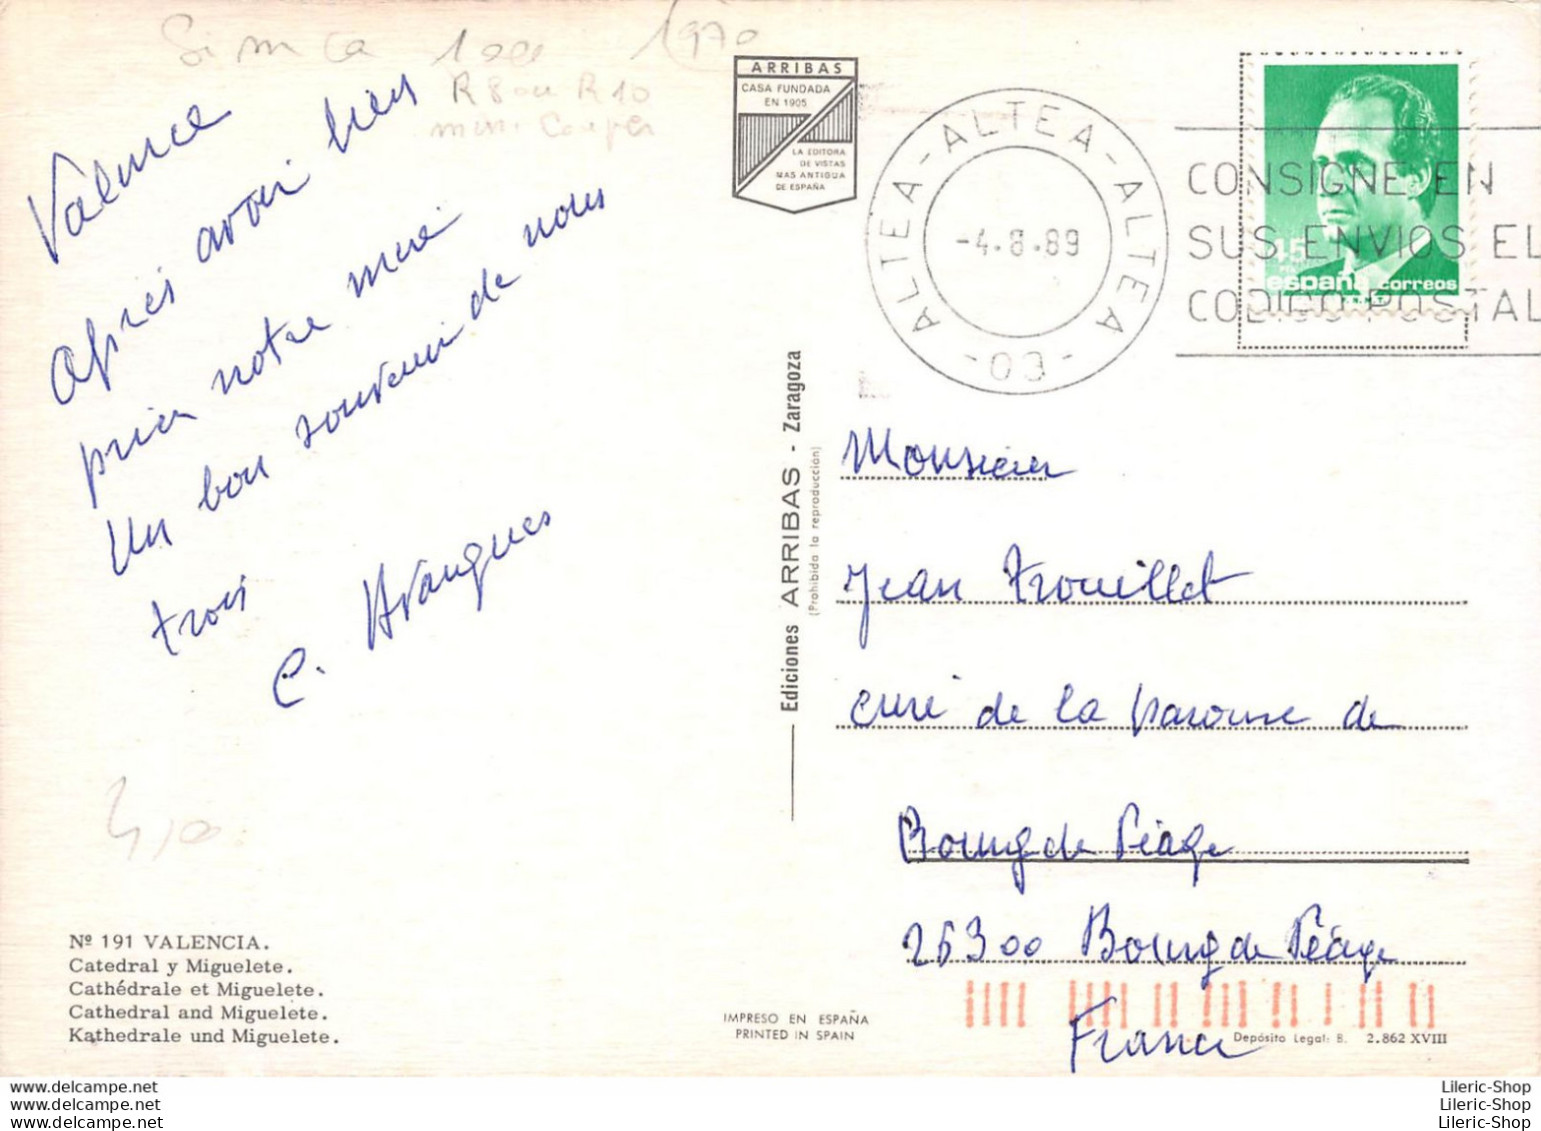 Simca 1000 1970
R8 ou R10
mini Cooper
Valence
Après avoir bien
prier notre mère
Un bon souvenir de nous
trois
C. Arangues
ARRIBAS
CASA FUNDADA
EN 1905
LA EDITORA
DE VISTAS
MAS ANTIGUA
DE ESPAÑA
ALTEA - ALTEA - ALTEA
-4.8.89
-03-
CONSIGNE EN
SUS ENVIOS EL
CODIGO POSTAL
45
españa correos
Ediciones ARRIBAS - Zaragoza
(Prohibida la reproducción)
Monsieur
Jean Trouillet
curé de la paroisse de
Bourg de Péage
26300 Bourg de Péage
France
Nº 191 VALENCIA.
Catedral y Miguelete.
Cathédrale et Miguelete.
Cathedral and Miguelete.
Kathedrale und Miguelete.
IMPRESO EN ESPAÑA
PRINTED IN SPAIN
Depósito Legal: B. 2.862 XVIII
Lileric-Shop
Lileric-Shop
Lileric-Shop
Lileric-Shop
Lileric-Shop
Lileric-Shop